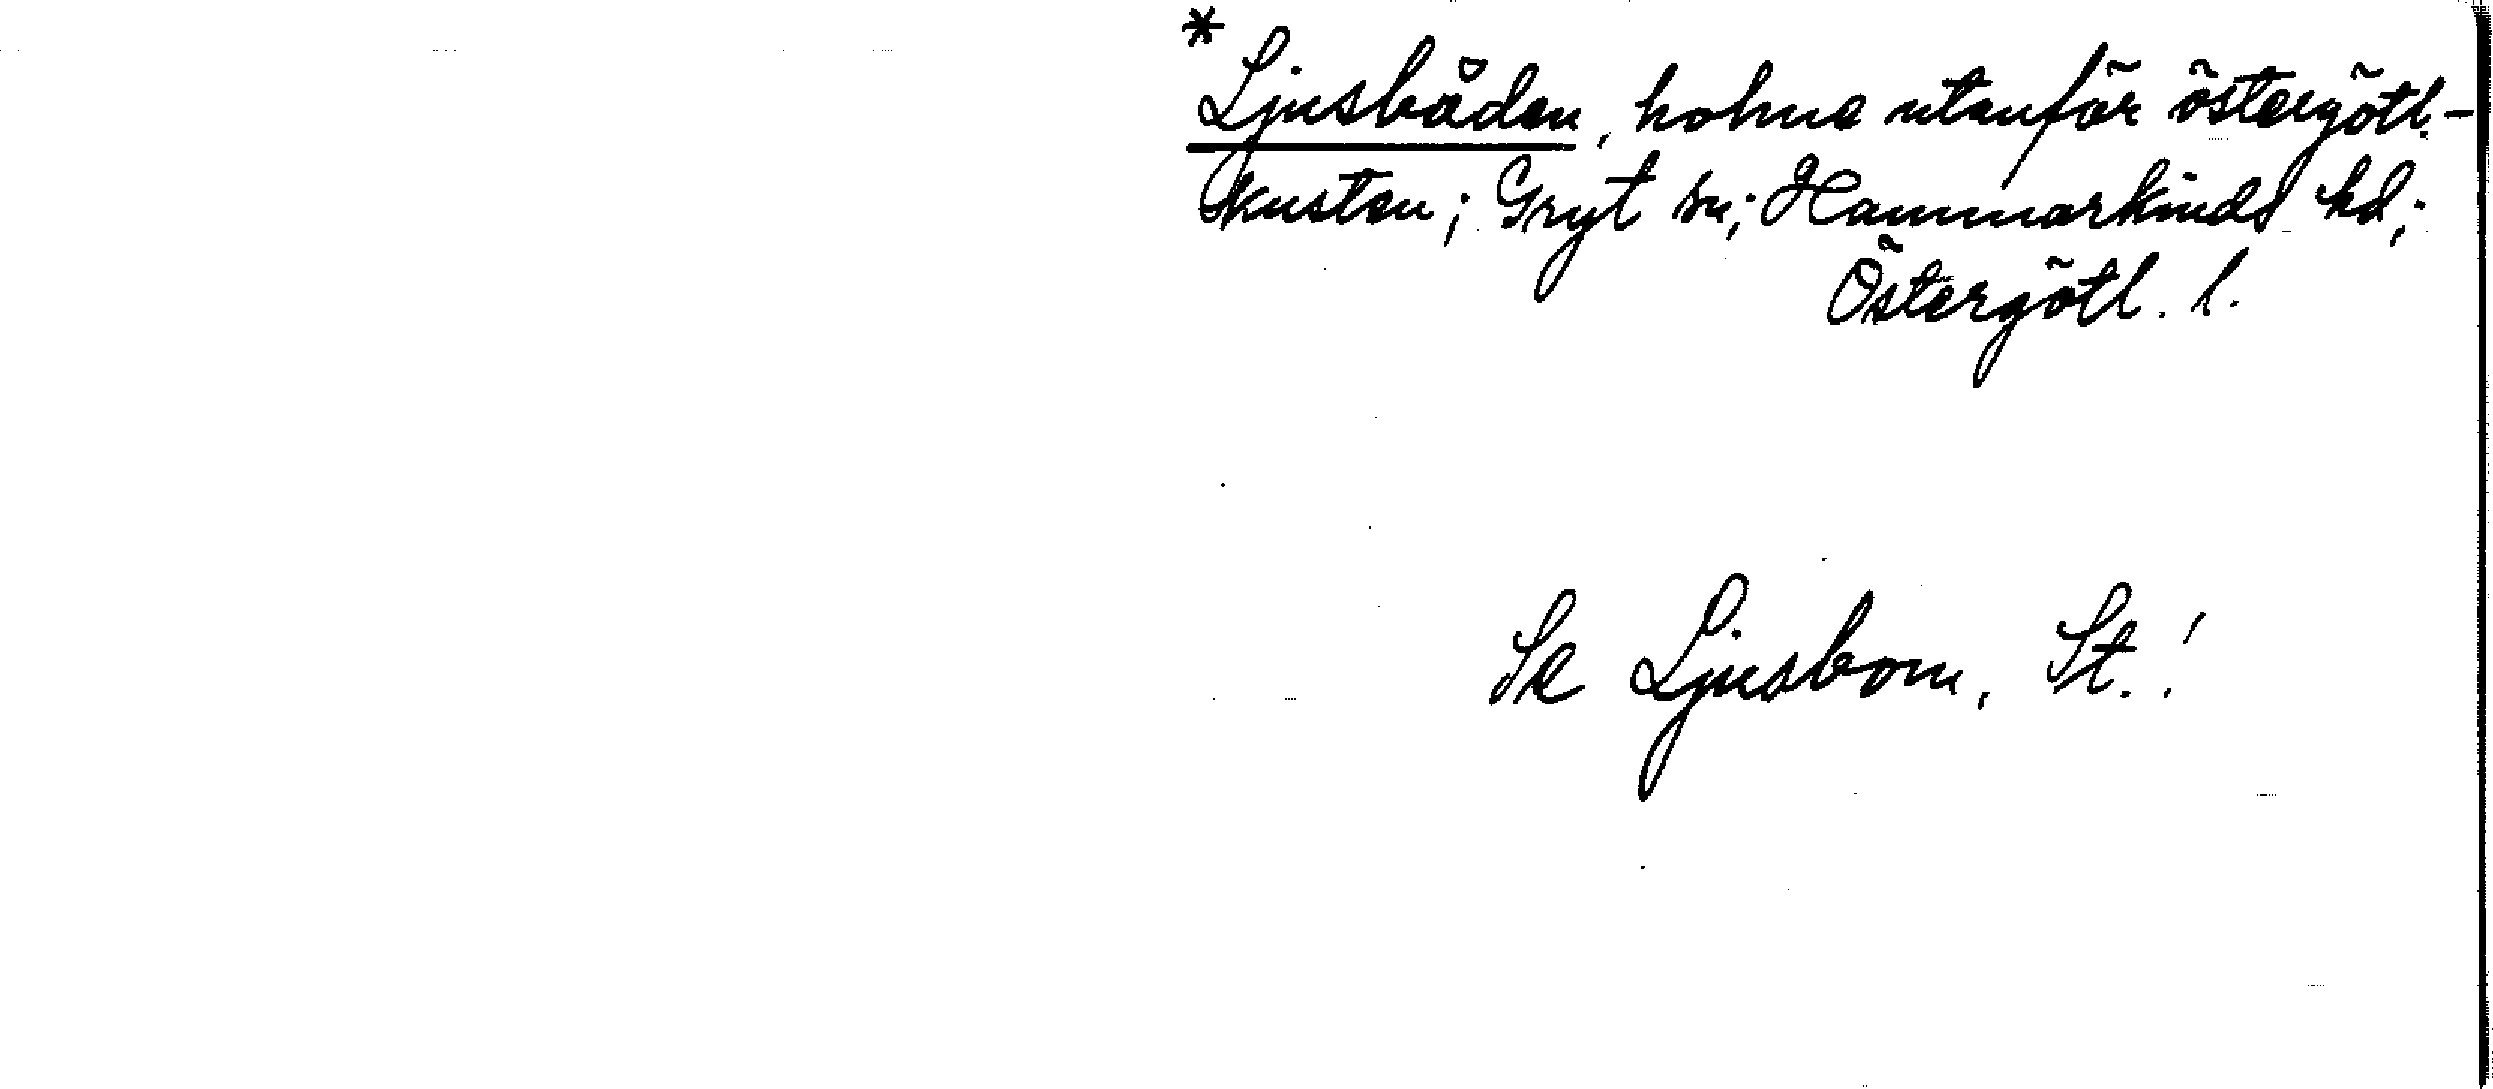 *
Ljusbåden, holme utanför östergötl.-
kusten; Gryt sn; Hammarkinds hd;
Östergötl. l.
Se Ljusbom, St.!